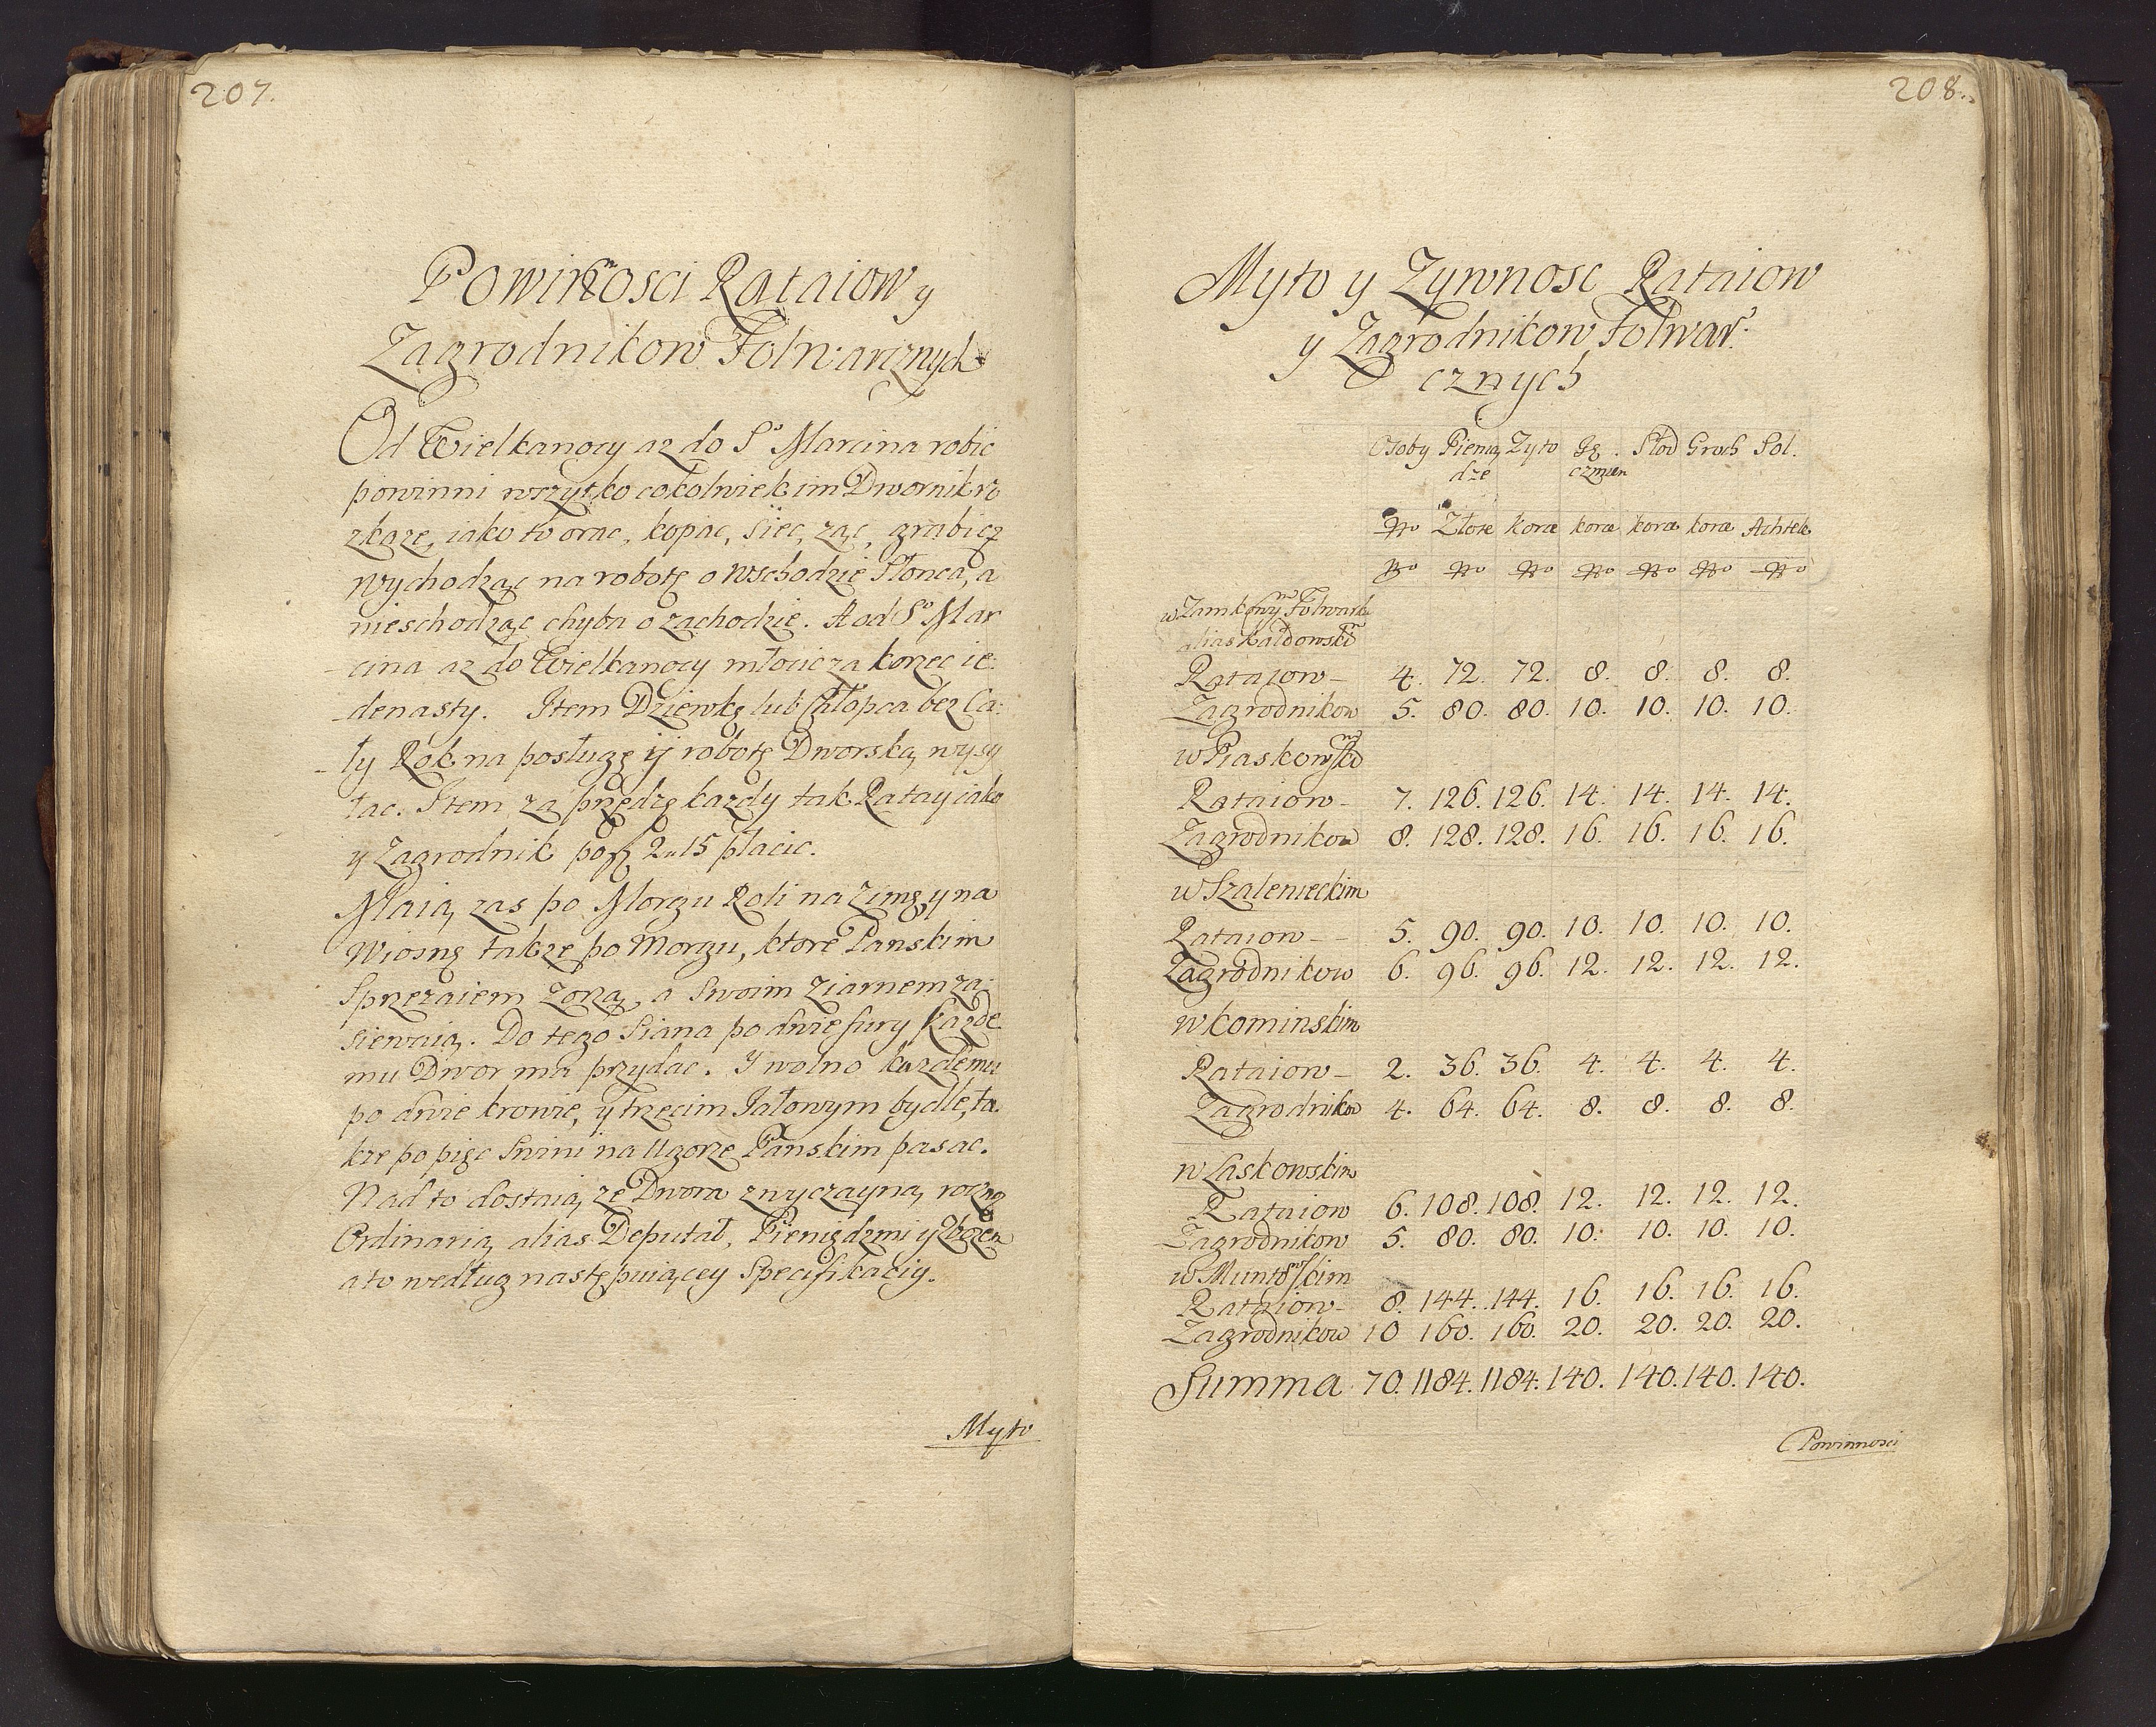 207.
Powinnosci Rataiow y
Zagrodnikow Folwarcznych
Od Wielkanocy az do So Marcina robic
powinni wszytko cokolwiek im Dwornik ro
zkaze, iako to orac, kopac, siec, ząc, grabic z
Wychodząc na robotę o Wschodzie Słonca, a
nieschodząc chyba o zachodzie. A od So Mar
cina az do Wielkanocy młocic za korzec ie:
denasty. Item Dziewkę lub Chłopca bez Ca:
ły Rok na posługę ÿ robotę Dworską wysy
łac. Item za przędzę kazdy tak Ratay iako
y Zagrodnik po 2 15 płacic.
Maią zas po Morgu Roli na Zimę y na
Wiosnę takze po Morgu, ktore Panskim
Sprzezaiem zorzą a Swoim Ziarnem za:
siewaią. Do tego Siana po dwie fury kazde
mu Dwor ma przydac. Y wolno kazdemu
po dwie krowie, ÿ trzecim Jałowym bydlę, ta
kze po pięc Swini na Ugorze Panskim pasac.
Nad to dostaią ze Dwora zwyczayną roczną
Ordinarią alias Deputat, Pieniędzmi ÿ Zbozem
a to według następuiącey Specifikaciy.
Myto
208.
Myto y Zywnosc Rataiow
y Zagrodnikow Folwar:
cznych
Osoby Pienią Zyto Ję Słod Groch Sol.
dze czmien
No Złote korce korce korce korce Achtele
No No No No No No No
w Zamkowym Folwark
alias Kałdowskim
Rataiow - 4. 72. 72. 8. 8. 8. 8.
Zagrodnikow 5. 80. 80. 10. 10. 10. 10.
w Piaskowskim
Rataiow - 7. 126. 126. 14. 14. 14. 14.
Zagrodnikow 8. 128. 128. 16. 16. 16. 16.
w Szalenieckim
Rataiow - - 5. 90. 90. 10. 10. 10. 10.
Zagrodnikow 6. 96. 96. 12. 12. 12. 12.
w kominskim
Rataiow - 2. 36. 36. 4. 4. 4. 4.
Zagrodnikow 4. 64. 64. 8. 8. 8. 8.
w Laskowskim
Rataiow 6. 108. 108. 12. 12. 12. 12.
Zagrodnikow 5. 80. 80. 10. 10. 10. 10.
w Muntowskim
Rataiow - 8. 144. 144. 16. 16. 16. 16.
Zagrodnikow 10 160. 160. 20. 20. 20. 20.
Summa 70. 1184. 1184. 140. 140. 140. 140.
Powinnosci